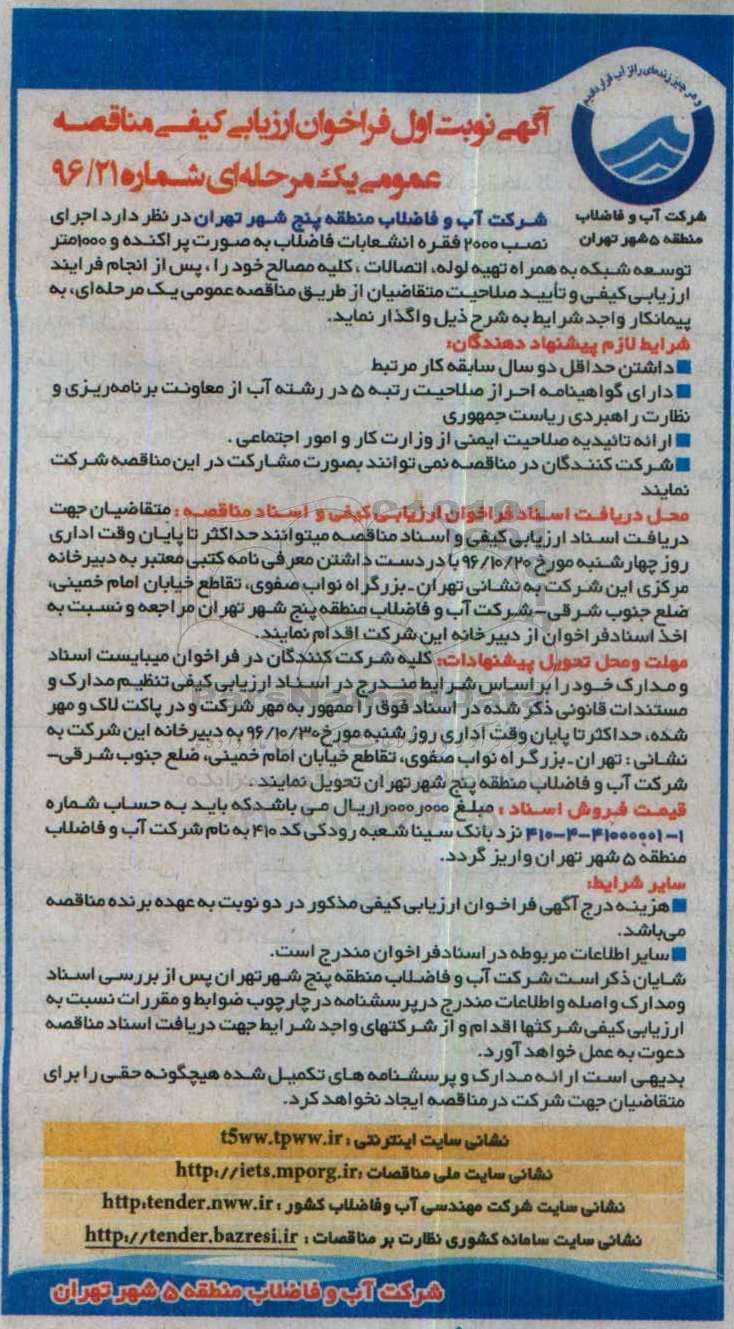 و هر چیز زنده‌ای را از آب قرار دادیم
شرکت آب و فاضلاب
منطقه ۵ شهر تهران
آگهی نوبت اول فراخوان ارزیابی کیفی مناقصه
عمومی یک مرحله‌ای شماره ۹۶/۲۱
شرکت آب و فاضلاب منطقه پنج شهر تهران در نظر دارد اجرای
نصب ۲۰۰۰ فقره انشعابات فاضلاب به صورت پراکنده و ۱۰۰۰متر
توسعه شبکه به همراه تهیه لوله، اتصالات ، کلیه مصالح خود را ، پس از انجام فرایند
ارزیابی کیفی و تأیید صلاحیت متقاضیان از طریق مناقصه عمومی یک مرحله‌ای، به
پیمانکار واجد شرایط به شرح ذیل واگذار نماید.
شرایط لازم پیشنهاد دهندگان:
■ داشتن حداقل دو سال سابقه کار مرتبط
■ دارای گواهینامه احراز صلاحیت رتبه ۵ در رشته آب از معاونت برنامه‌ریزی و
نظارت راهبردی ریاست جمهوری
■ ارائه تائیدیه صلاحیت ایمنی از وزارت کار و امور اجتماعی .
■ شرکت کنندگان در مناقصه نمی توانند بصورت مشارکت در این مناقصه شرکت
نمایند
محل دریافت اسناد فراخوان ارزیابی کیفی و اسناد مناقصه : متقاضیان جهت
دریافت اسناد ارزیابی کیفی و اسناد مناقصه میتوانند حداکثر تا پایان وقت اداری
روز چهارشنبه مورخ ۹۶/۱۰/۲۰ با در دست داشتن معرفی نامه کتبی معتبر به دبیرخانه
مرکزی این شرکت به نشانی تهران ـ بزرگراه نواب صفوی، تقاطع خیابان امام خمینی،
ضلع جنوب شرقی– شرکت آب و فاضلاب منطقه پنج شهر تهران مراجعه و نسبت به
اخذ اسناد فراخوان از دبیرخانه این شرکت اقدام نمایند.
مهلت ومحل تحویل پیشنهادات: کلیه شرکت کنندگان در فراخوان میبایست اسناد
و مدارک خود را براساس شرایط مندرج در اسناد ارزیابی کیفی تنظیم مدارک و
مستندات قانونی ذکر شده در اسناد فوق را ممهور به مهر شرکت و در پاکت لاک و مهر
شده، حداکثر تا پایان وقت اداری روز شنبه مورخ ۹۶/۱۰/۳۰ به دبیرخانه این شرکت به
نشانی : تهران ـ بزرگراه نواب صفوی، تقاطع خیابان امام خمینی، ضلع جنوب شرقی–
شرکت آب و فاضلاب منطقه پنج شهر تهران تحویل نمایند .
قیمت فروش اسناد : مبلغ ۱٫۰۰۰٫۰۰۰ریال می باشد که باید به حساب شماره
۱-۴۱۰-۴-۴۱۰۰۰۰۰۱ نزد بانک سینا شعبه رودکی کد ۴۱۰ به نام شرکت آب و فاضلاب
منطقه ۵ شهر تهران واریز گردد.
سایر شرایط:
■ هزینه درج آگهی فراخوان ارزیابی کیفی مذکور در دو نوبت به عهده برنده مناقصه
می‌باشد.
■ سایر اطلاعات مربوطه در اسناد فراخوان مندرج است.
شایان ذکر است شرکت آب و فاضلاب منطقه پنج شهر تهران پس از بررسی اسناد
ومدارک واصله و اطلاعات مندرج در پرسشنامه در چارچوب ضوابط و مقررات نسبت به
ارزیابی کیفی شرکتها اقدام و از شرکتهای واجد شرایط جهت دریافت اسناد مناقصه
دعوت به عمل خواهد آورد.
بدیهی است ارائه مدارک و پرسشنامه های تکمیل شده هیچگونه حقی را برای
متقاضیان جهت شرکت در مناقصه ایجاد نخواهد کرد.
نشانی سایت اینترنتی : t5ww.tpww.ir
نشانی سایت ملی مناقصات :http://iets.mporg.ir
نشانی سایت شرکت مهندسی آب وفاضلاب کشور : http:tender.nww.ir
نشانی سایت سامانه کشوری نظارت بر مناقصات : http://tender.bazresi.ir
شرکت آب و فاضلاب منطقه ۵ شهر تهران